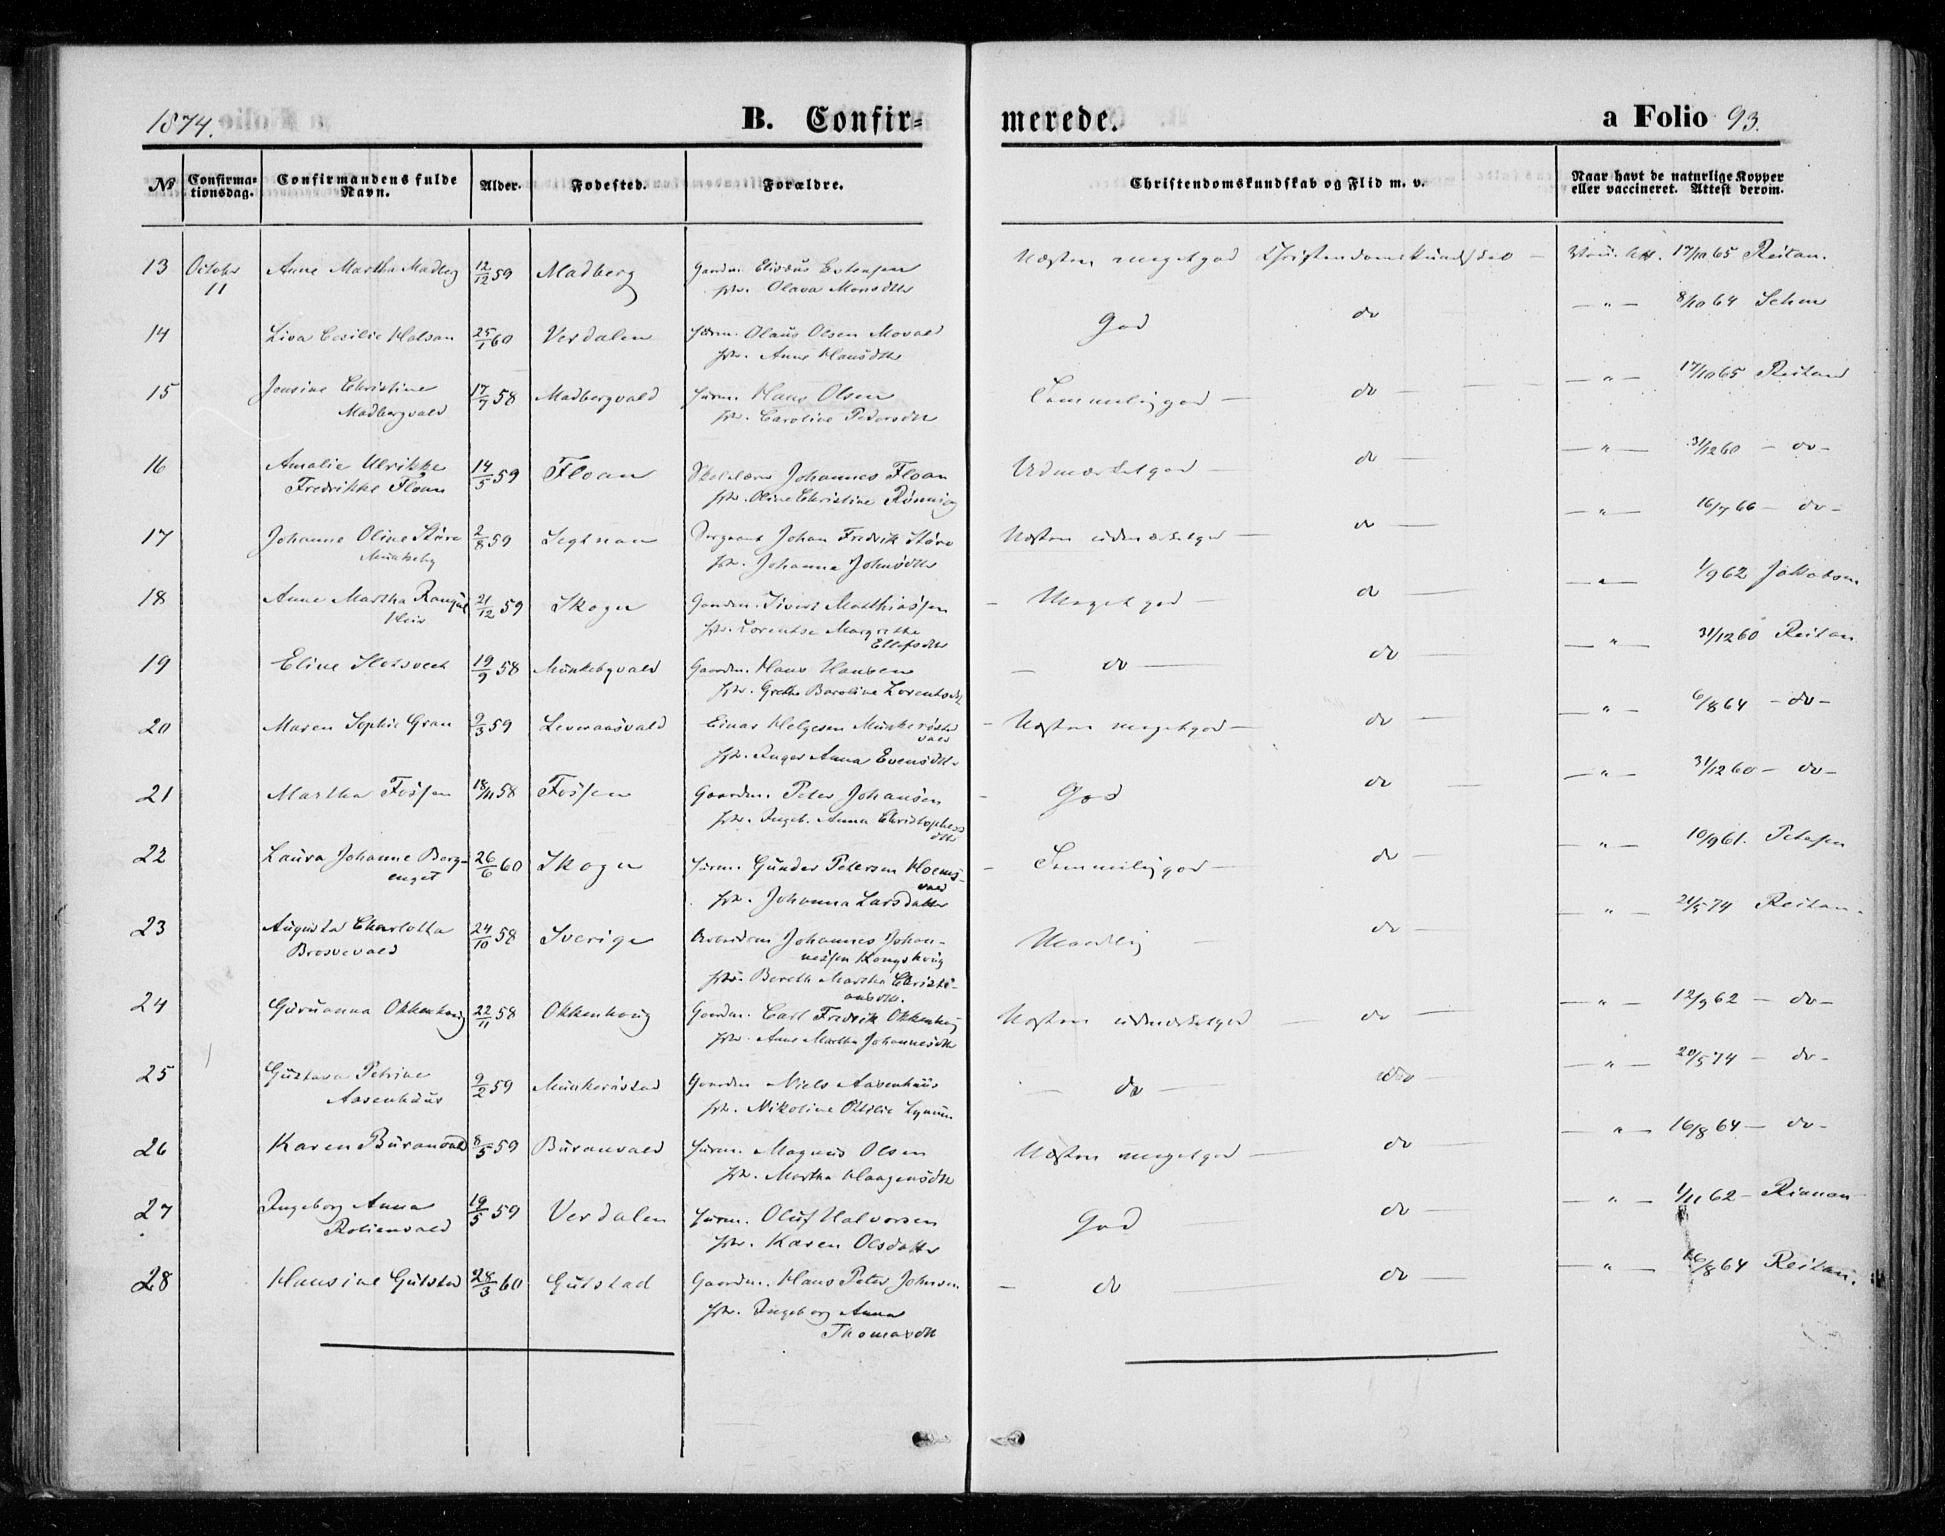 1874. B. Confirmerede. a Folio 93.
№ Confirmationsdag. Confirmandens fulde Navn. Alder. Fødested. Forældre. Christendomskundskab og Flid m. v. Naar havt de naturlige Kopper eller vaccineret. Attest derom.
13 October 11 Anne Martha Madberg 12/12 59 Madberg Gaardm. Elisæus Estensen
Olava Monsdtr Næsten megetgod Christendomskundskab — 17/10 65 Reitan.
14 25/1 60 Verdalen Olaus Olsen Movald
Anne Hansdtr God do — " — 8/10 64
15 Jensine Christine
Madbergvald 17/7 58 Madbergvald Husm. Hans Olsen
Caroline Pedersdtr Temmelig god — do — — " — 17/10 65 Reitan
16 Amalie Ulrikke
Fredrikke Floan 14/5 59 Floan Skolelærer Johannes Floan
Oline Christine Rønning Udmærketgod — do — — " — 31/12 60 — do —
17 Johanne Oline Støre
Munkeby 2/8 59 Segtnan Sergeant Johan Fredrik Støre
Johanna Johnsdtr Næsten udmærketgod — do — — " — 16/7 66 — do —
18 Anne Martha
21/12 59 Skogn Gaardm. Siveri Matthiassen
Lorentse Margrethe
Ellefsdtr — Meget god — do — — " — 1/9 62 Jakobsen
19 Eline Slotsveet 19/9 58 Munkebyvald Gaardm. Hans Hansen
Grethe Baroline Lorentsdtr — do — do — — " — 31/12 60 Reitan
20 Maren Sophie Gran 9/3 59 Leveraasvald Einar Helgesen Munkerøstad
vald
Inger Anna Evensdtr — Næsten megetgod — do — — " — 6/8 64 — do —
21 Martha Fossen 18/11 58 Fossen Gaardm. Peter Johansen
Ingeb. Anna Christophers
dtr — God do — — " — 31/12 60 — do —
22 Laura Johanne Berg-
enget 26/6 60 Skogn Husm. Gunder Petersen Hoems-
vald
Johanna Larsdatter — Temmelig god — do — " — 10/9 61. Petersen
23 Augusta Charlotta
Brosvevald 24/10 58 Sverige Johannes Johan-
nessen Kongshoug
Bereth Martha Christi-
ansdtr. Maadelig — do — " — 21/5 74 Reitan.
24 Guruanna Okkenhoug 22/11 58 Okkenhoug Gaardm. Carl Fredrik Okkenhoug
Anne Martha Johannesdtr Næsten udmærketgod — do — — " — 12/9 62 — do —
25 Gustava Petrine
Aasenhuus 9/2 59 Munkerøstad Gaardm Niels Aasenhuus
Nikoline Ottilie Lynum — do — do — — " — 20/5 74 — do —
26 Karen Buranvald 8/5 59 Buranvald Husm. Magnus Olsen
Martha Haagensdtr Næsten megetgod — do — — " — 16/8 64 — do —
27 Ingeborg Anna
19/5 59 Verdalen Husm. Oluf Halvorsen
Karen Olsdatter God — do — — " — 1/11 62 —
28 Hansine Gutstad 28/3 60 Gutstad Gaardm. Hans Peter Johnsen
Ingeborg Anna
Thomasdtr — do — do — — " — 16/8 64 Reitan.